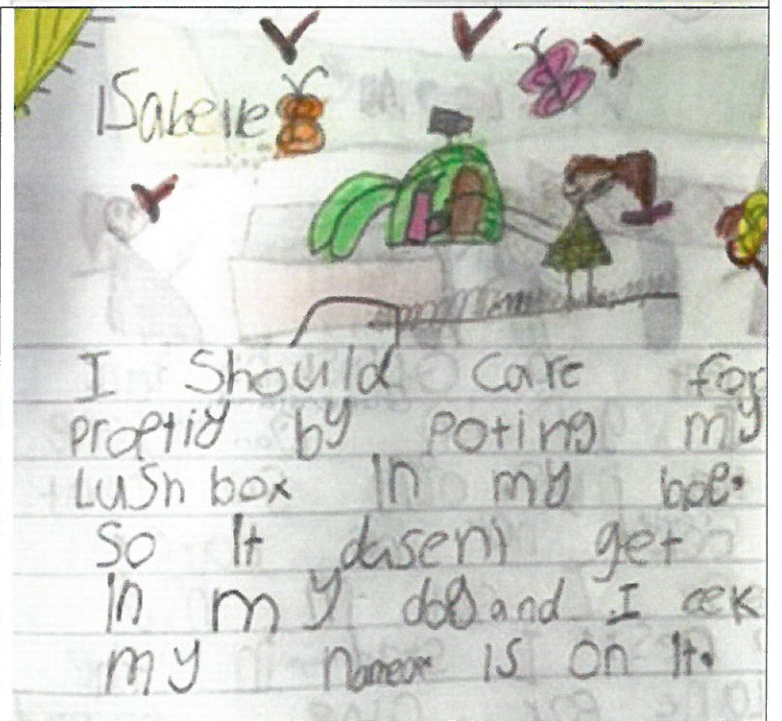 Isabelle
I Should care for
proptiy by poting my
Lush box in my bag.
So It dusent get
in my dog and I cek
my name is on It.